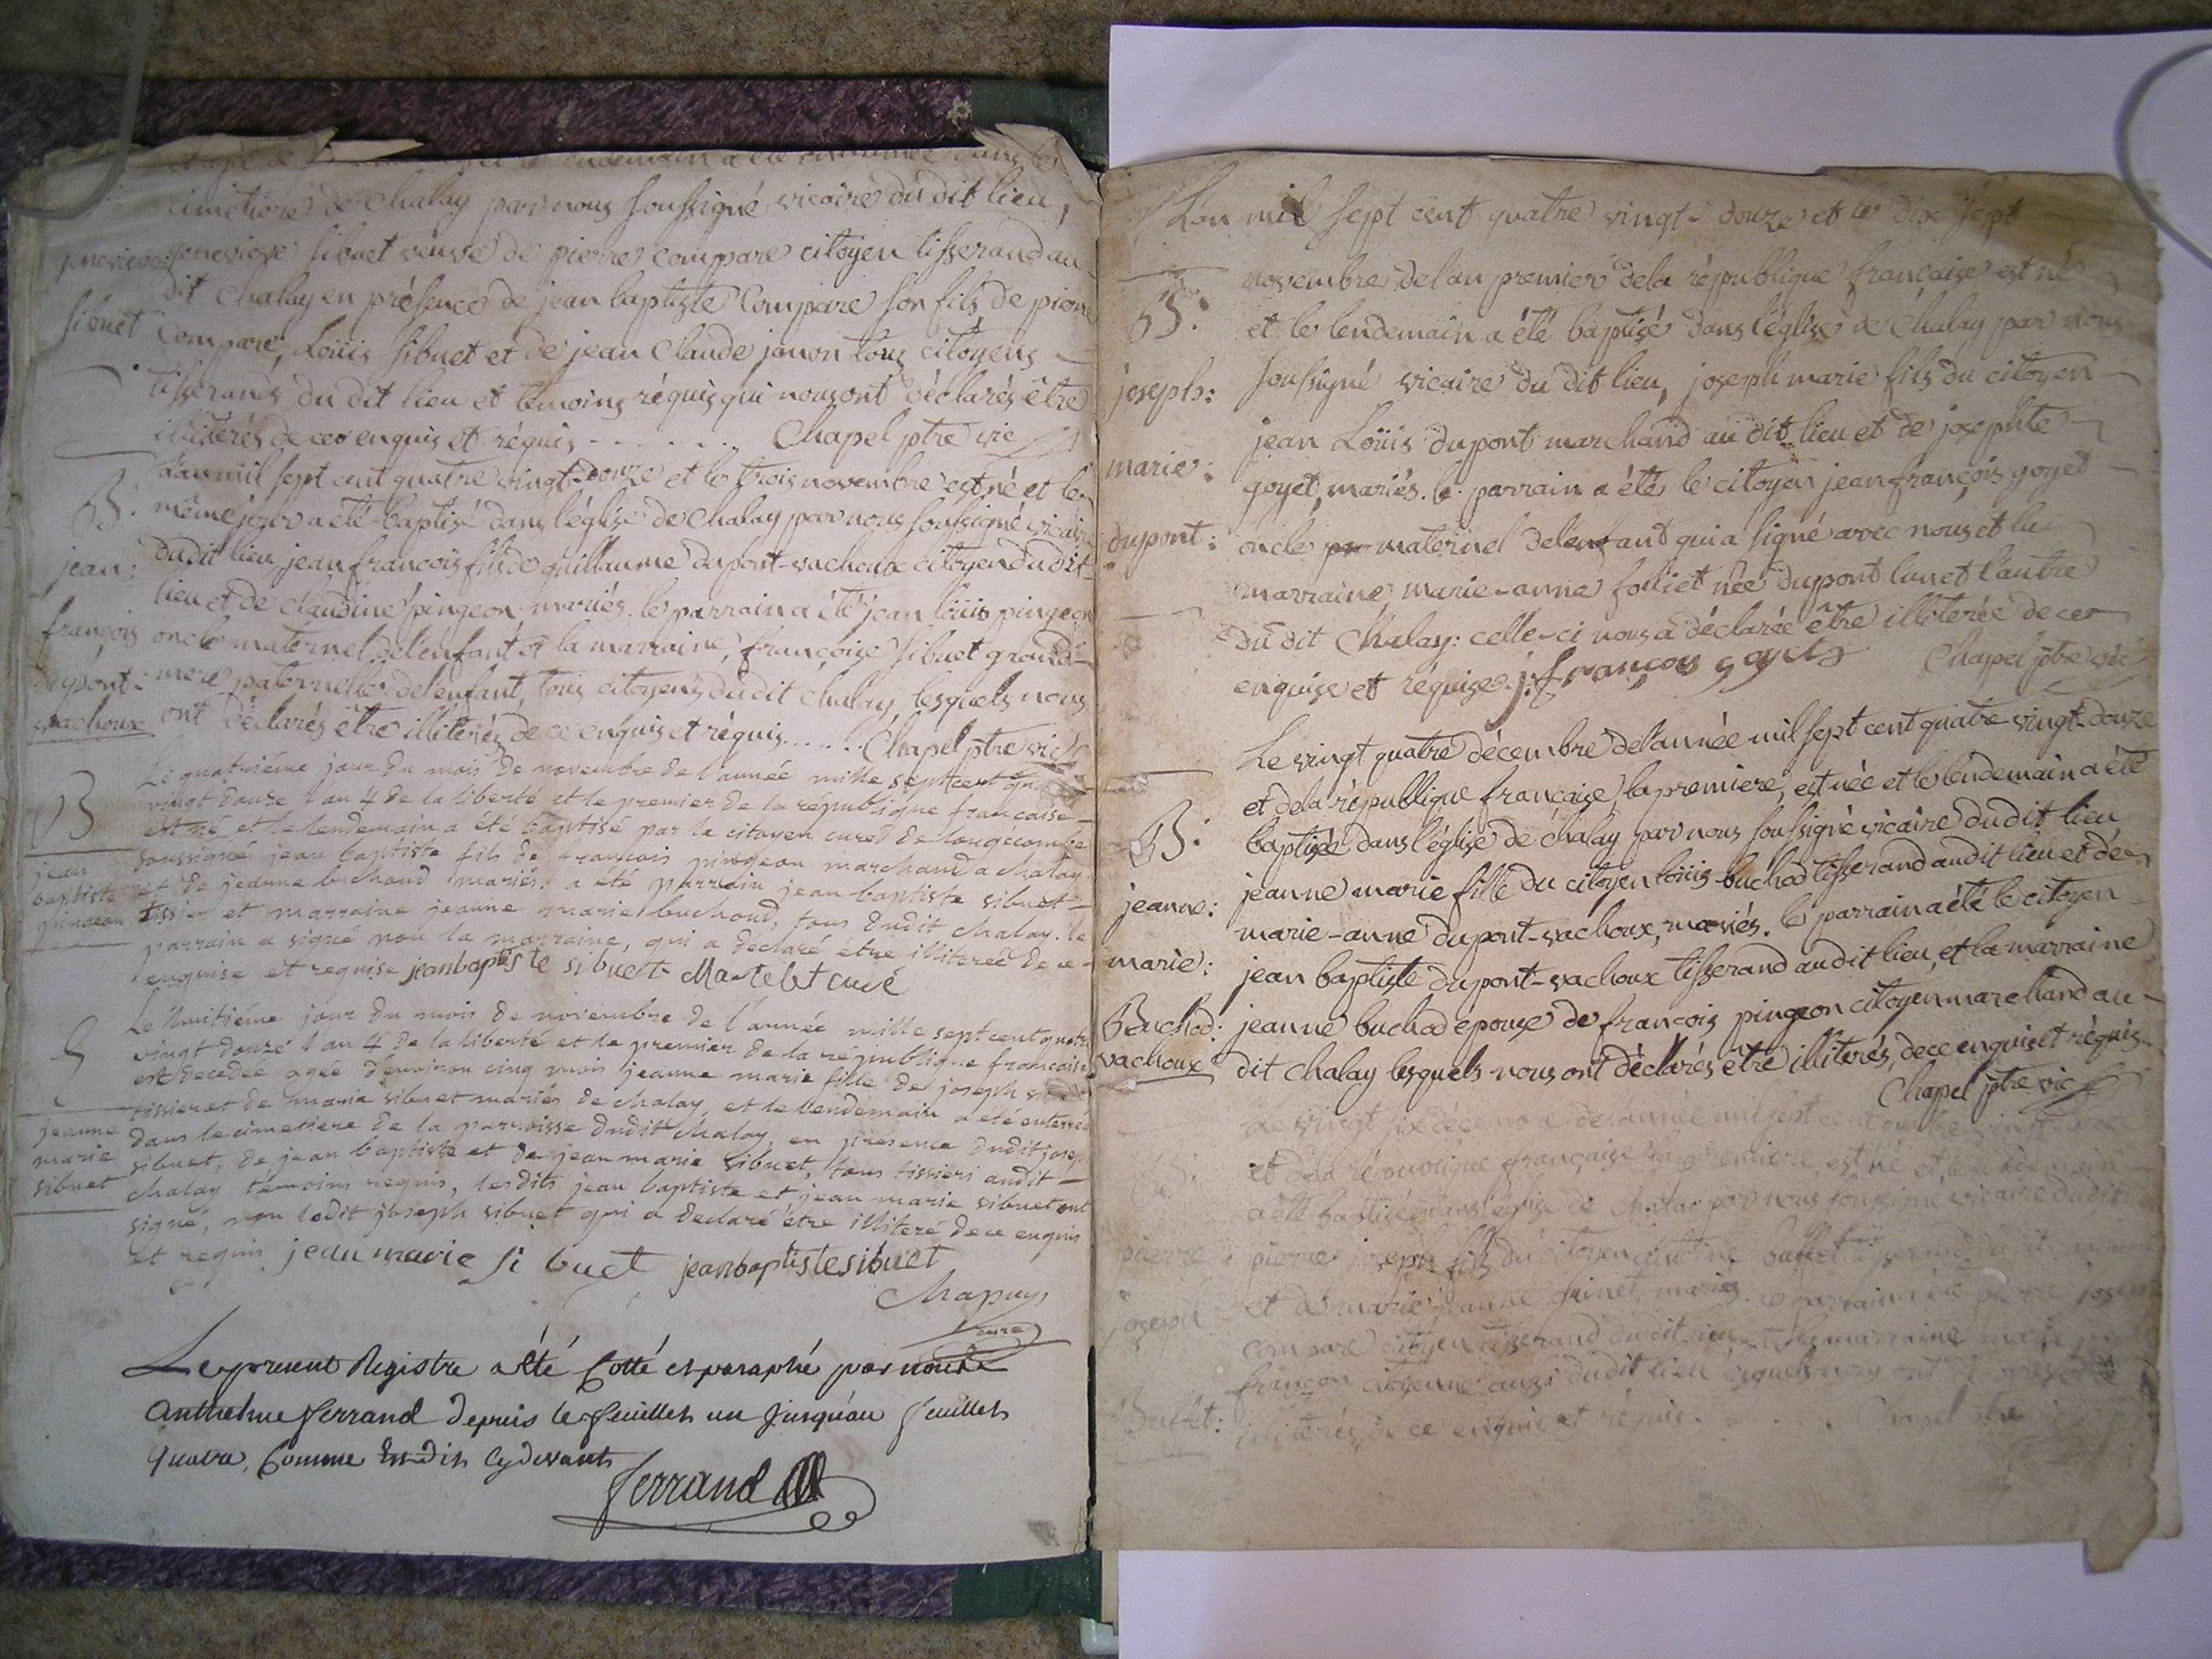 endemain a été inhumée dans le
cimetiere de Chalay par nous soussigné vicaire du dit lieu,
genevieve: genevieve sibuet veuve de pierre compare citoyen tisserand au
dit Chalay en présence de jean baptiste Compare son fils, de pierre
sibuet Compare, Loüis sibuet et de jean Claude janon tous citoyens
tisserands du dit lieu et temoins réquis qui nous ont déclarés être
illiterés de ce enquis et réquis - - - - - - - Chapel ptre vic
B: L'an mil sept cent quatre vingt-douze et le trois novembre est né et le
même jour a été baptisé dans l'église de Chalay par nous soussigné vicaire
jean: du dit lieu jean françois fils de guillaume dupont-vachoux citoyen du dit
lieu et de claudine pingeon mariés. le parrain a été jean loüis pingeon
françois oncle maternel de l'enfant et la marraine, françoise sibuet grand-
dupont: mere paternelle de l'enfant, tous citoyens du dit chalay, lesquels nous
vachoux ont déclarés être illiterés de ce enquis et réquis . . . . . . Chapel ptre vic
Le quatriéme jour du mois de novembre de l'année mille sept cent quatre
B vingt douze l'an 4 de la liberté et le premier de la république francaise
est né et le lendemain a été baptisé par le citoyen curé de longecombe
jean soussigné jean baptiste fils de francois pingeon marchand a chalay
baptiste et de jeanne buchoud mariés. a été parrain jean baptiste sibuet
pingeon tissier et marraine jeanne marie buchoud, tous dudit chalay. le
parrain a signé non la marraine, qui a déclaré être illiterée de ce
enquise et requise jean baptiste sibuet Martelet curé
Le huitiéme jour du mois de novembre de l'année mille sept cent quatre
S vingt douze l'an 4 de la liberté et le premier de la république francaise
est decedée agée d'environ cinq mois jeanne marie fille de joseph sibuet
tissier et de marie sibuet mariés de chalay, et le lendemain a été enterrée
jeanne dans le cimetiere de la parroisse dudit chalay, en presence dudit joseph
marie sibuet, de jean baptiste et de jean marie sibuet, tous tissiers audit
sibuet chalay témoins requis, lesdits jean baptiste et jean marie sibuet ont
signé, non ledit joseph sibuet qui a declaré être illiteré de ce enquis
et requis jean marie si buet jean baptiste sibuet
Chapuy
curé
Le present Registre a été Cotté et paraphé par nous
Anthelme ferrand depuis le feuillet un jusqu'au feuillet
quatre, Comme Est dit cy devant
ferrand
L'an mil sept cent quatre vingt-douze et le dix sept
novembre de l'an premier de la république française est né
B: et le lendemain a été baptisé dans l'église de Chalay par nous
soussigné vicaire du dit lieu, joseph marie fils du citoyen
joseph: jean Loüis dupont marchand au dit lieu et de josephte
marie: goyet, mariés. le parrain a été le citoyen jean françois goyet
dupont: oncle maternel de l'enfant qui a signé avec nous et la
marraine marie-anne folliet née dupont l'un et l'autre
du dit Chalay: celle-ci nous a déclarée être illiterée de ce
enquise et réquise. j: françois goyet Chapel ptre vic
Le vingt quatre décembre de l'année mil sept cent quatre vingt-douze
et de la république française la premiere, est née et le lendemain a été
B: baptisée dans l'église de chalay par nous soussigné vicaire du dit lieu
jeanne marie fille du citoyen loüis buchod tisserand au dit lieu et de
jeanne: marie-anne dupont-vachoux, mariés. le parrain a été le citoyen
marie: jean baptiste dupont-vachoux tisserand au dit lieu, et la marraine
Buchod: jeanne buchod épouse de françois pingeon citoyen marchand au
vachoux dit chalay lesquels nous ont déclarés être illiterés, de ce enquis et réquis
Chapel ptre vic
Le vingt six décembre de l'année mil sept cent quatre vingt
et de la république française la premiere, est né et le lendemain
a été baptisé dans l'église de chalay par nous soussigné vicaire du dit
pierre pierre joseph fils du citoyen tisserand du dit
et de marie jeanne mariés. le parrain a été pierre joseph
joseph compare citoyen tisserand du dit lieu et la marraine marie
françon citoyenne aussi du dit lieu lesquels nous ont
illiterés de ce enquis et réquis . . . Chapel ptre vic